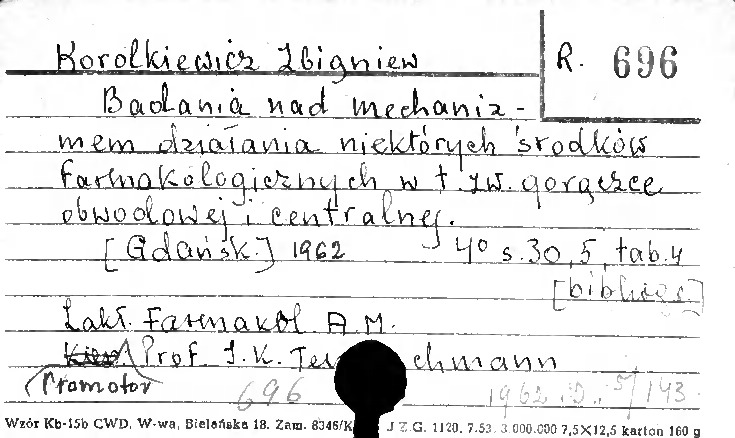 Korolkiewicz Zbigniew
R. 696
Badania nad mechaniz-
mem działania niektórych środków
farmakologicznych w t. zw. gorączce
obwodowej i centralnej.
[Gdańsk] 1962 4° s. 30, 5, tab. 4
[bibliogr.]
Zakł. Farmakol. A. M.
Prof. J. K. chmann
Promotor
696 1962 D. 5/143
Wzór Kb-15b CWD, W-wa, Bielańska 18. Zam. 8346/K J Z. G. 1120. 7.53. 3.000.000 7,5×12,5 karton 160 g